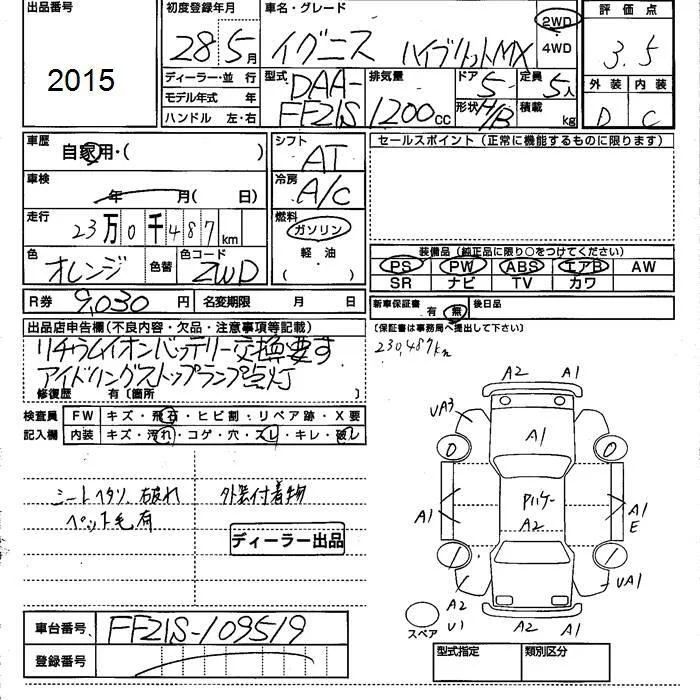 出品番号
2015
初度登録年月
28 5月
ディーラー・並 行
モデル年式 年
ハンドル 左・右
車名・グレード
イグニス ハイブリットMX
2WD
4WD
型式
DAA-
FF21S
排気量
1200cc
ドア 5
形状 H/B
定員 5人
積載 kg
評価点
3.5
外装 内装
D C
車歴
自家用・( )
車検
年 月( 日)
走行
23万0千487km
色
オレンジ
色替
色コード
ZWD
R券 9,030円
名変期限 月 日
シフト
AT
冷房
A/C
燃料
ガソリン
軽油
( )
セールスポイント(正常に機能するものに限ります)
装備品(純正品に限り○をつけてください)
PS PW ABS エアB AW
SR ナビ TV カワ
新車保証書 有 無
後日品
(保証書は事務局へ提出して下さい)
230,487km
出品店申告欄(不良内容・欠品・注意事項等記載)
リチウムイオンバッテリー交換要す
アイドリングストップランプ点灯
修復歴 有〔箇所 〕
検査員
記入欄
FW キズ・飛石・ヒビ割・リペア跡・X要
内装 キズ・汚れ・コゲ・穴・スレ・キレ・破レ
シートヘタリ、破れ
ペット毛有
外装付着物
ディーラー出品
車台番号 FF21S-109519
登録番号
A2 A1
UA3
A1
0 0
A1
A2
A1
E
1 1
A2
U1
UA1
A2 A1
スペア
型式指定 類別区分